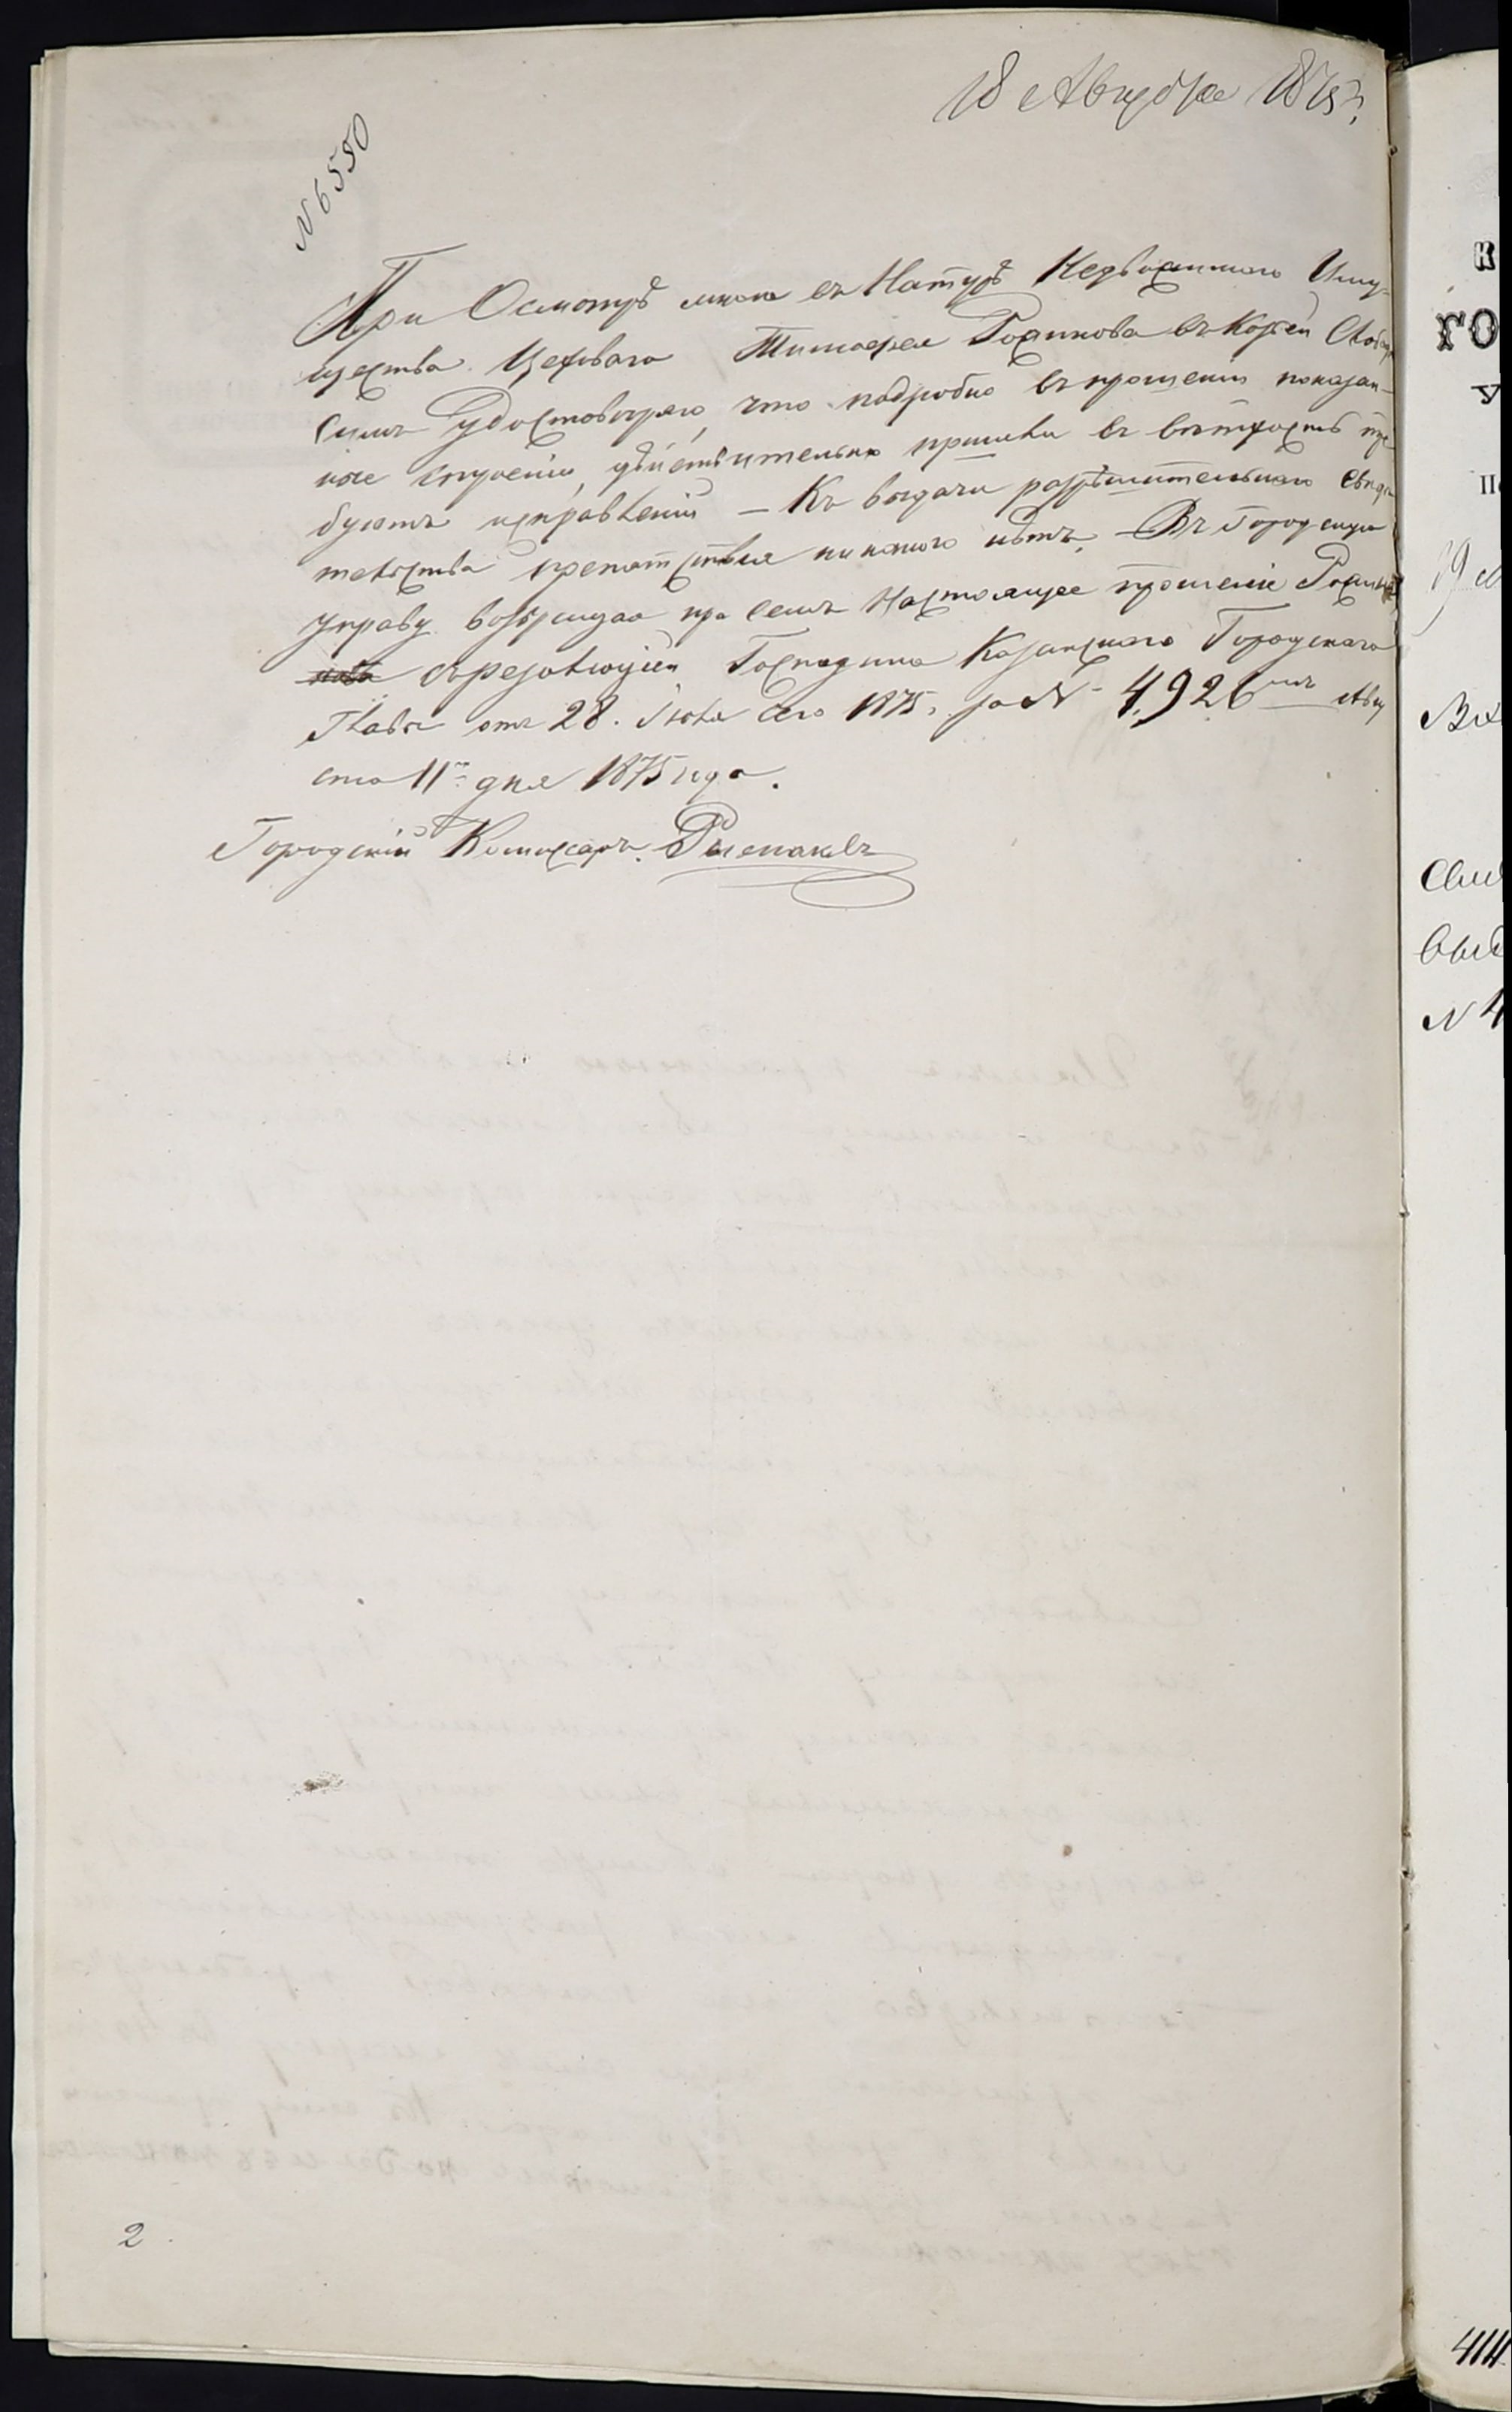 18 Августа 1875 г.
№ 6550
При Осмотрѣ мною въ Натурѣ Недвижимаго Иму-
щества Цеховаго Тимофея Родинова въ Козьей Слобод
Симъ Удостовѣряю, что подробно въ прошении показан-
ное строение, дѣйствительно пришли въ ветхость тре
буютъ исправления — Къ выдачи разрѣшительнаго Свидѣ
тельства препятствия никакого нѣтъ, — Въ Городскую
управу возвращая при семъ Настоящее прошение
съ резолюціей Господина Казанскаго Городскаго
Главы отъ 28. Іюля сего 1875, за № 4,926мъ Авгу
ста 11го дня 1875 года.
Городскій Комисаръ.
2
К
ГО
У
№ 4